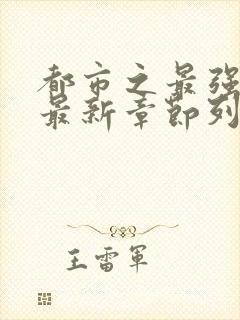 都市之最强
最新章節列
王雷軍